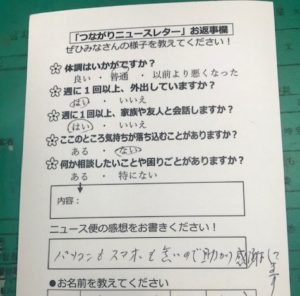 「つながりニュースレター」お返事欄
ぜひみなさんの様子を教えてください!
☆体調はいかがですか?
良い ・ 普通 ・ 以前より悪くなった
☆週に1回以上、外出していますか?
はい ・ いいえ
☆週に1回以上、家族や友人と会話しますか?
はい ・ いいえ
☆ここのところ気持ちが落ち込むことがありますか?
ある ・ ない
☆何か相談したいことや困りごとがありますか?
ある ・ 特にない
内容:
ニュース便の感想をお書きください!
パソコンもスマホも無いので助かり感謝して
ます
●お名前を教えてください